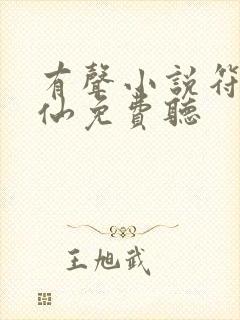 有聲小說符
仙免費聽
王旭武